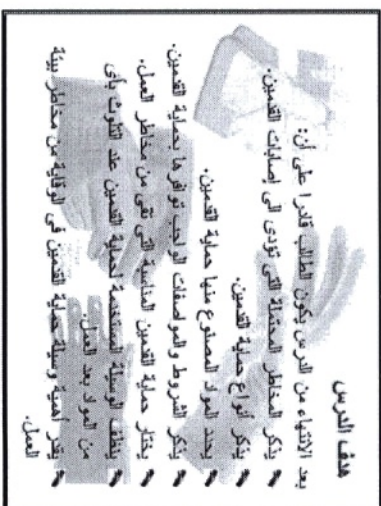 هدف الدرس
بعد الانتهاء من الدرس يكون الطالب قادرا على أن:
يذكر المخاطر المحتملة التي تؤدى إلى إصابات القدمين.
يذكر أنواع حماية القدمين.
يحدد المواد المصنوع منها حماية القدمين.
يذكر الشروط والمواصفات الواجب توافرها بحماية القدمين.
يختار حماية القدمين المناسبة التي تقى من مخاطر العمل.
ينظف الوسيلة المستخدمة لحماية القدمين عند التلوث بأى
من المواد بعد العمل.
يقدر أهمية وسيلة حماية القدمين في الوقاية من مخاطر بيئة
العمل.